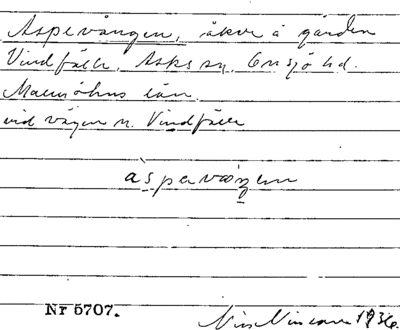 Aspevången, åker å gården
Vindfälle, Asks sn. Onsjö hd.
Malmöhus län.
vid vägen n. Vindfälle
aspevæŋen
Nr 5707.
1936.